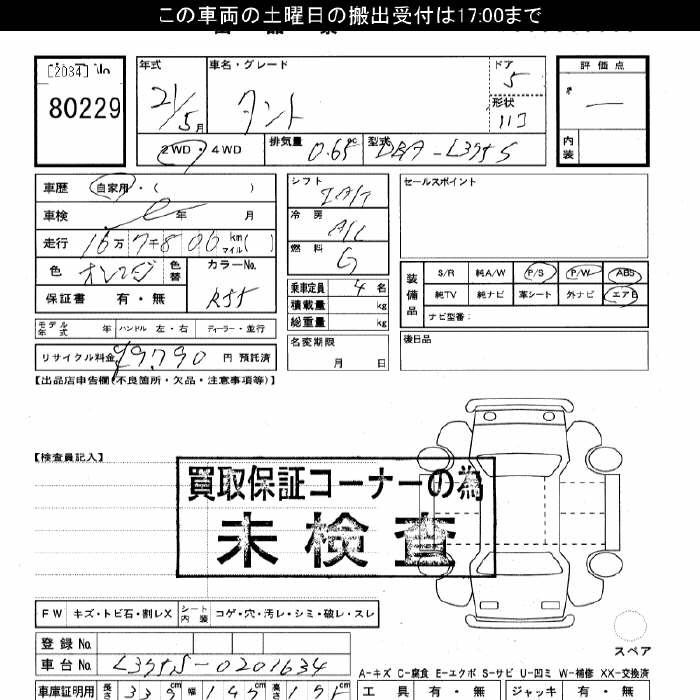 この車両の土曜日の搬出受付は17:00まで
[2034] No
80229
年式 21/5月
車名・グレード タント
ドア 5
形状
評価点 —
内装
2WD・4WD
排気量 0.65 cc
型式 DBA-L375S
車歴 自家用・( )
車検 年 月
走行 16万7千800 km マイル( )
色 オレンジ 色替
カラーNo. R55
保証書 有・無
モデル年式 年 ハンドル 左・右 ディーラー・並行
リサイクル料金 ¥9,790 円 預託済
シフト IAT
冷房 A/C
燃料 G
乗車定員 4 名
積載量 kg
総重量 kg
名変期限 月 日
セールスポイント
装備品
S/R 純A/W P/S P/W ABS
純TV 純ナビ 革シート 外ナビ エアB
ナビ型番:
後日品
【出品店申告欄(不良箇所・欠品・注意事項等)】
【検査員記入】
買取保証コーナーの為
未検査
FW キズ・トビ石・割レX シート内装 コゲ・穴・汚レ・シミ・破レ・スレ
スペア
登録No.
車台No. L375S-0201634
A-キズ C-腐食 E-エクボ S-サビ U-凹ミ W-補修 XX-交換済
車庫証明用 長さ 339cm 幅 147cm 高さ 175cm
工具 有・無 ジャッキ 有・無